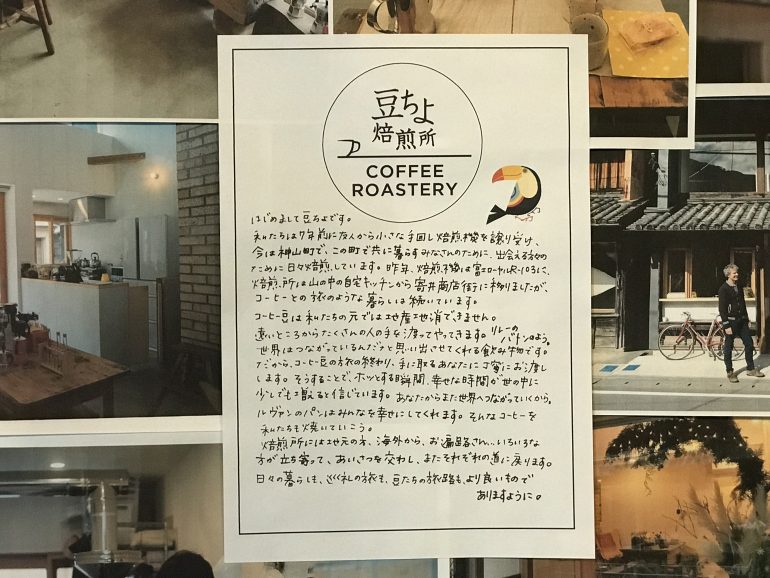 豆ちよ
焙煎所
COFFEE
ROASTERY
はじめまして豆ちよです。
私たちは7年前に友人から小さな手回し焙煎機を譲り受け、
今は神山町で、この町で共に暮らすみなさんのために、出会える方々の
ために日々焙煎しています。昨年、焙煎機は富士ローヤルR-103に、
焙煎所は山の中の自宅キッチンから寄井商店街に移りましたが、
コーヒーとの旅のような暮らしは続いています。
コーヒー豆は私たちの元では地産地消できません。
遠いところからたくさんの人の手を渡ってやってきます。リレーの
バトンのよう。
世界はつながっているんだ?と思い出させてくれる飲み物です。
だから、コーヒー豆の旅の終わり、手に取るあなたに丁寧にお渡し
します。そうすることで、ホッとする瞬間、幸せな時間が世の中に
少しでも増えると信じています。あなたからまた世界へつながっていくから。
ルヴァンのパンはみんなを幸せにしてくれます。そんなコーヒーを
私たちも焼いていこう。
焙煎所には地元の方、海外から、お遍路さん…いろいろな
方が立ち寄って、あいさつを交わし、またそれぞれの道に戻ります。
日々の暮らしも、巡礼の旅も、豆たちの旅路も、より良いもので
ありますように。